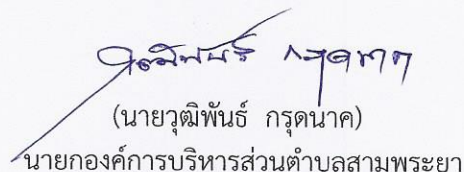 วุฒิพันธ์ กรุดนาค
(นายวุฒิพันธ์ กรุดนาค)
นายกองค์การบริหารส่วนตำบลสามพระยา